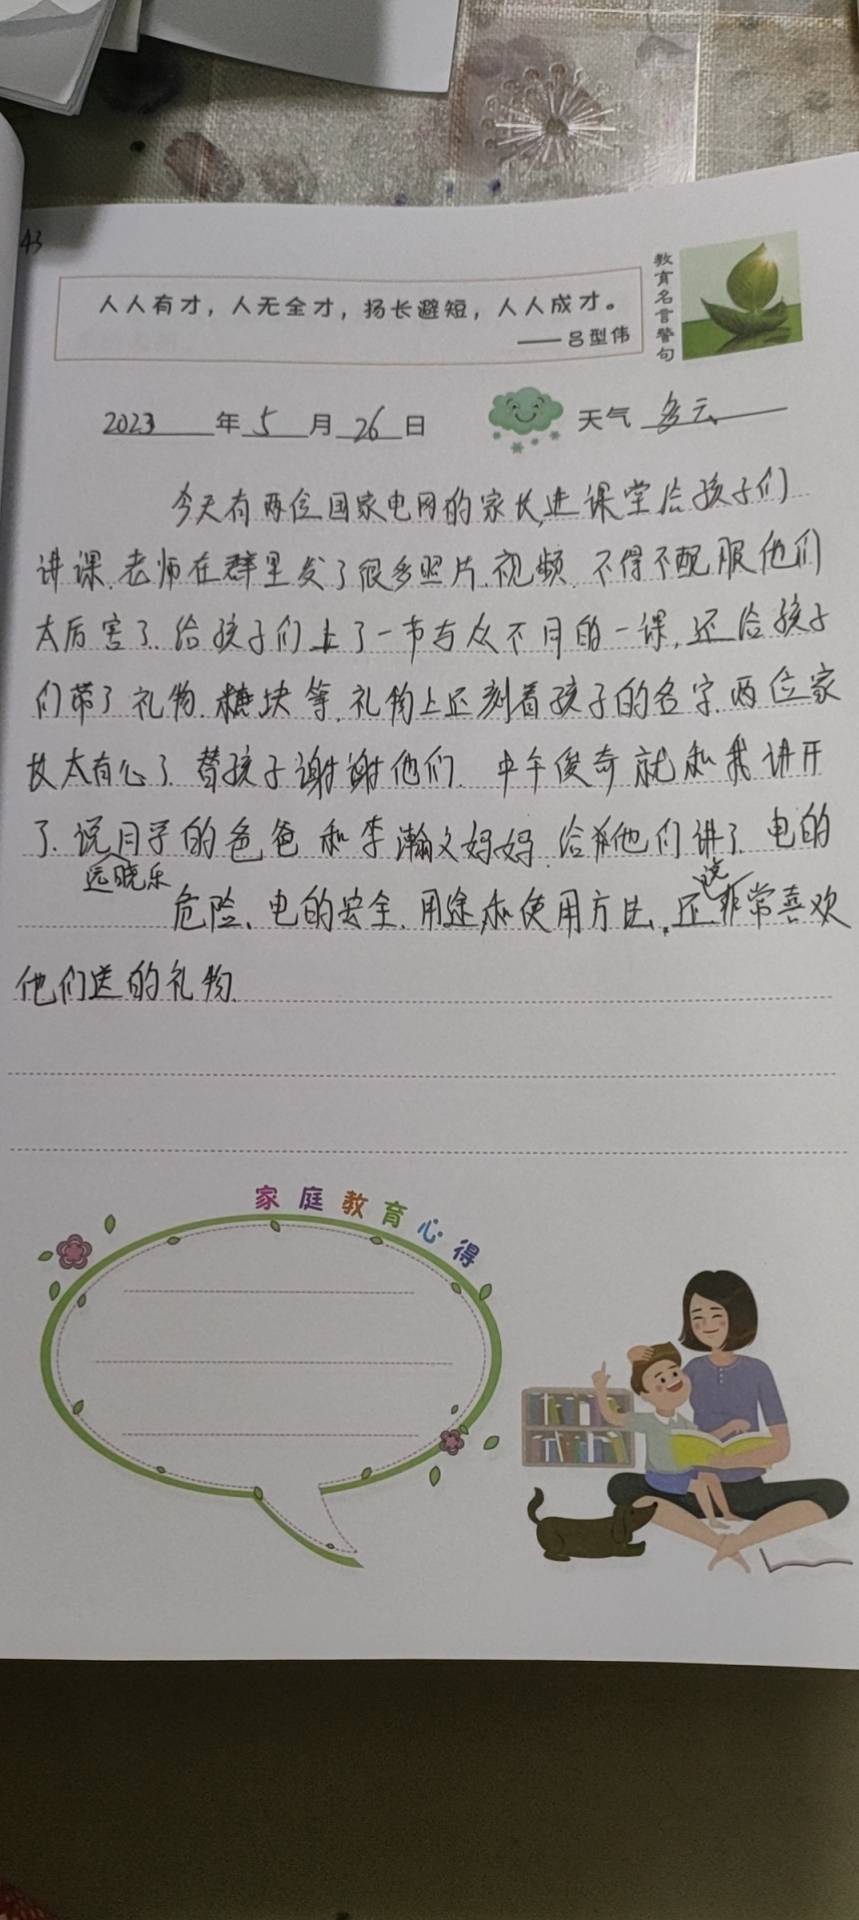 43
人人有才，人无全才，扬长避短，人人成才。
——吕型伟
教育名言警句
2023年5月26日
天气 多云
今天有两位国家电网的家长进课堂给孩子们
讲课.老师在群里发了很多照片.视频.不得不配服他们
太厉害了.给孩子们上了一节与众不同的一课,还给孩子
们带了礼物.糖块等.礼物上还刻着孩子的名字.两位家
长太有心了.替孩子谢谢他们.中午俊奇就和我讲开
了.说同学的爸爸和李瀚文妈妈.给他们讲了电的
晓乐
说
危险、电的安全.用途和使用方法.还非常喜欢
他们送的礼物.
家庭教育心得